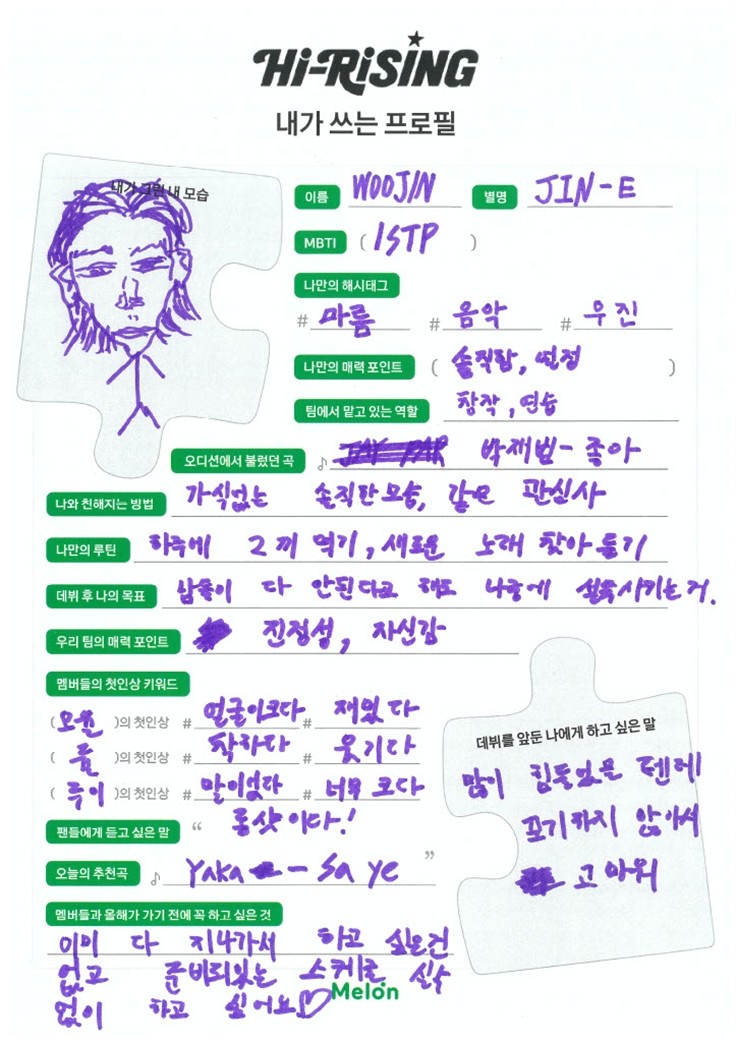 Hi-RiSiNG
내가 쓰는 프로필
내가 그린 내 모습
이름 WOOJIN 별명 JIN-E
MBTI ( ISTP )
나만의 해시태그
# 마름 # 음악 # 우진
나만의 매력 포인트 ( 솔직함, 열정 )
팀에서 맡고 있는 역할 창작, 연습
오디션에서 불렀던 곡 ♪ 박재범 - 좋아
나와 친해지는 방법 가식없는 솔직한 모습, 같은 관심사
나만의 루틴 하루에 2끼 먹기, 새로운 노래 찾아 듣기
데뷔 후 나의 목표 남들이 다 안된다고 해도 나중에 설득시키는 거.
우리 팀의 매력 포인트 진정성, 자신감
멤버들의 첫인상 키워드
( )의 첫인상 # 얼굴이크다 # 재밌다
( )의 첫인상 # 착하다 # 웃기다
( )의 첫인상 # 말이없다 # 너무 크다
팬들에게 듣고 싶은 말 “ 롱샷이다! ”
오늘의 추천곡 ♪ Yaka - Sa ye
멤버들과 올해가 가기 전에 꼭 하고 싶은 것
이미 다 지나가서 하고 싶은건
없고 준비되있는 스케줄 실수
없이 하고 싶어요♡
데뷔를 앞둔 나에게 하고 싶은 말
많이 힘들었을 텐데
포기하지 않아서
고마워
Melon